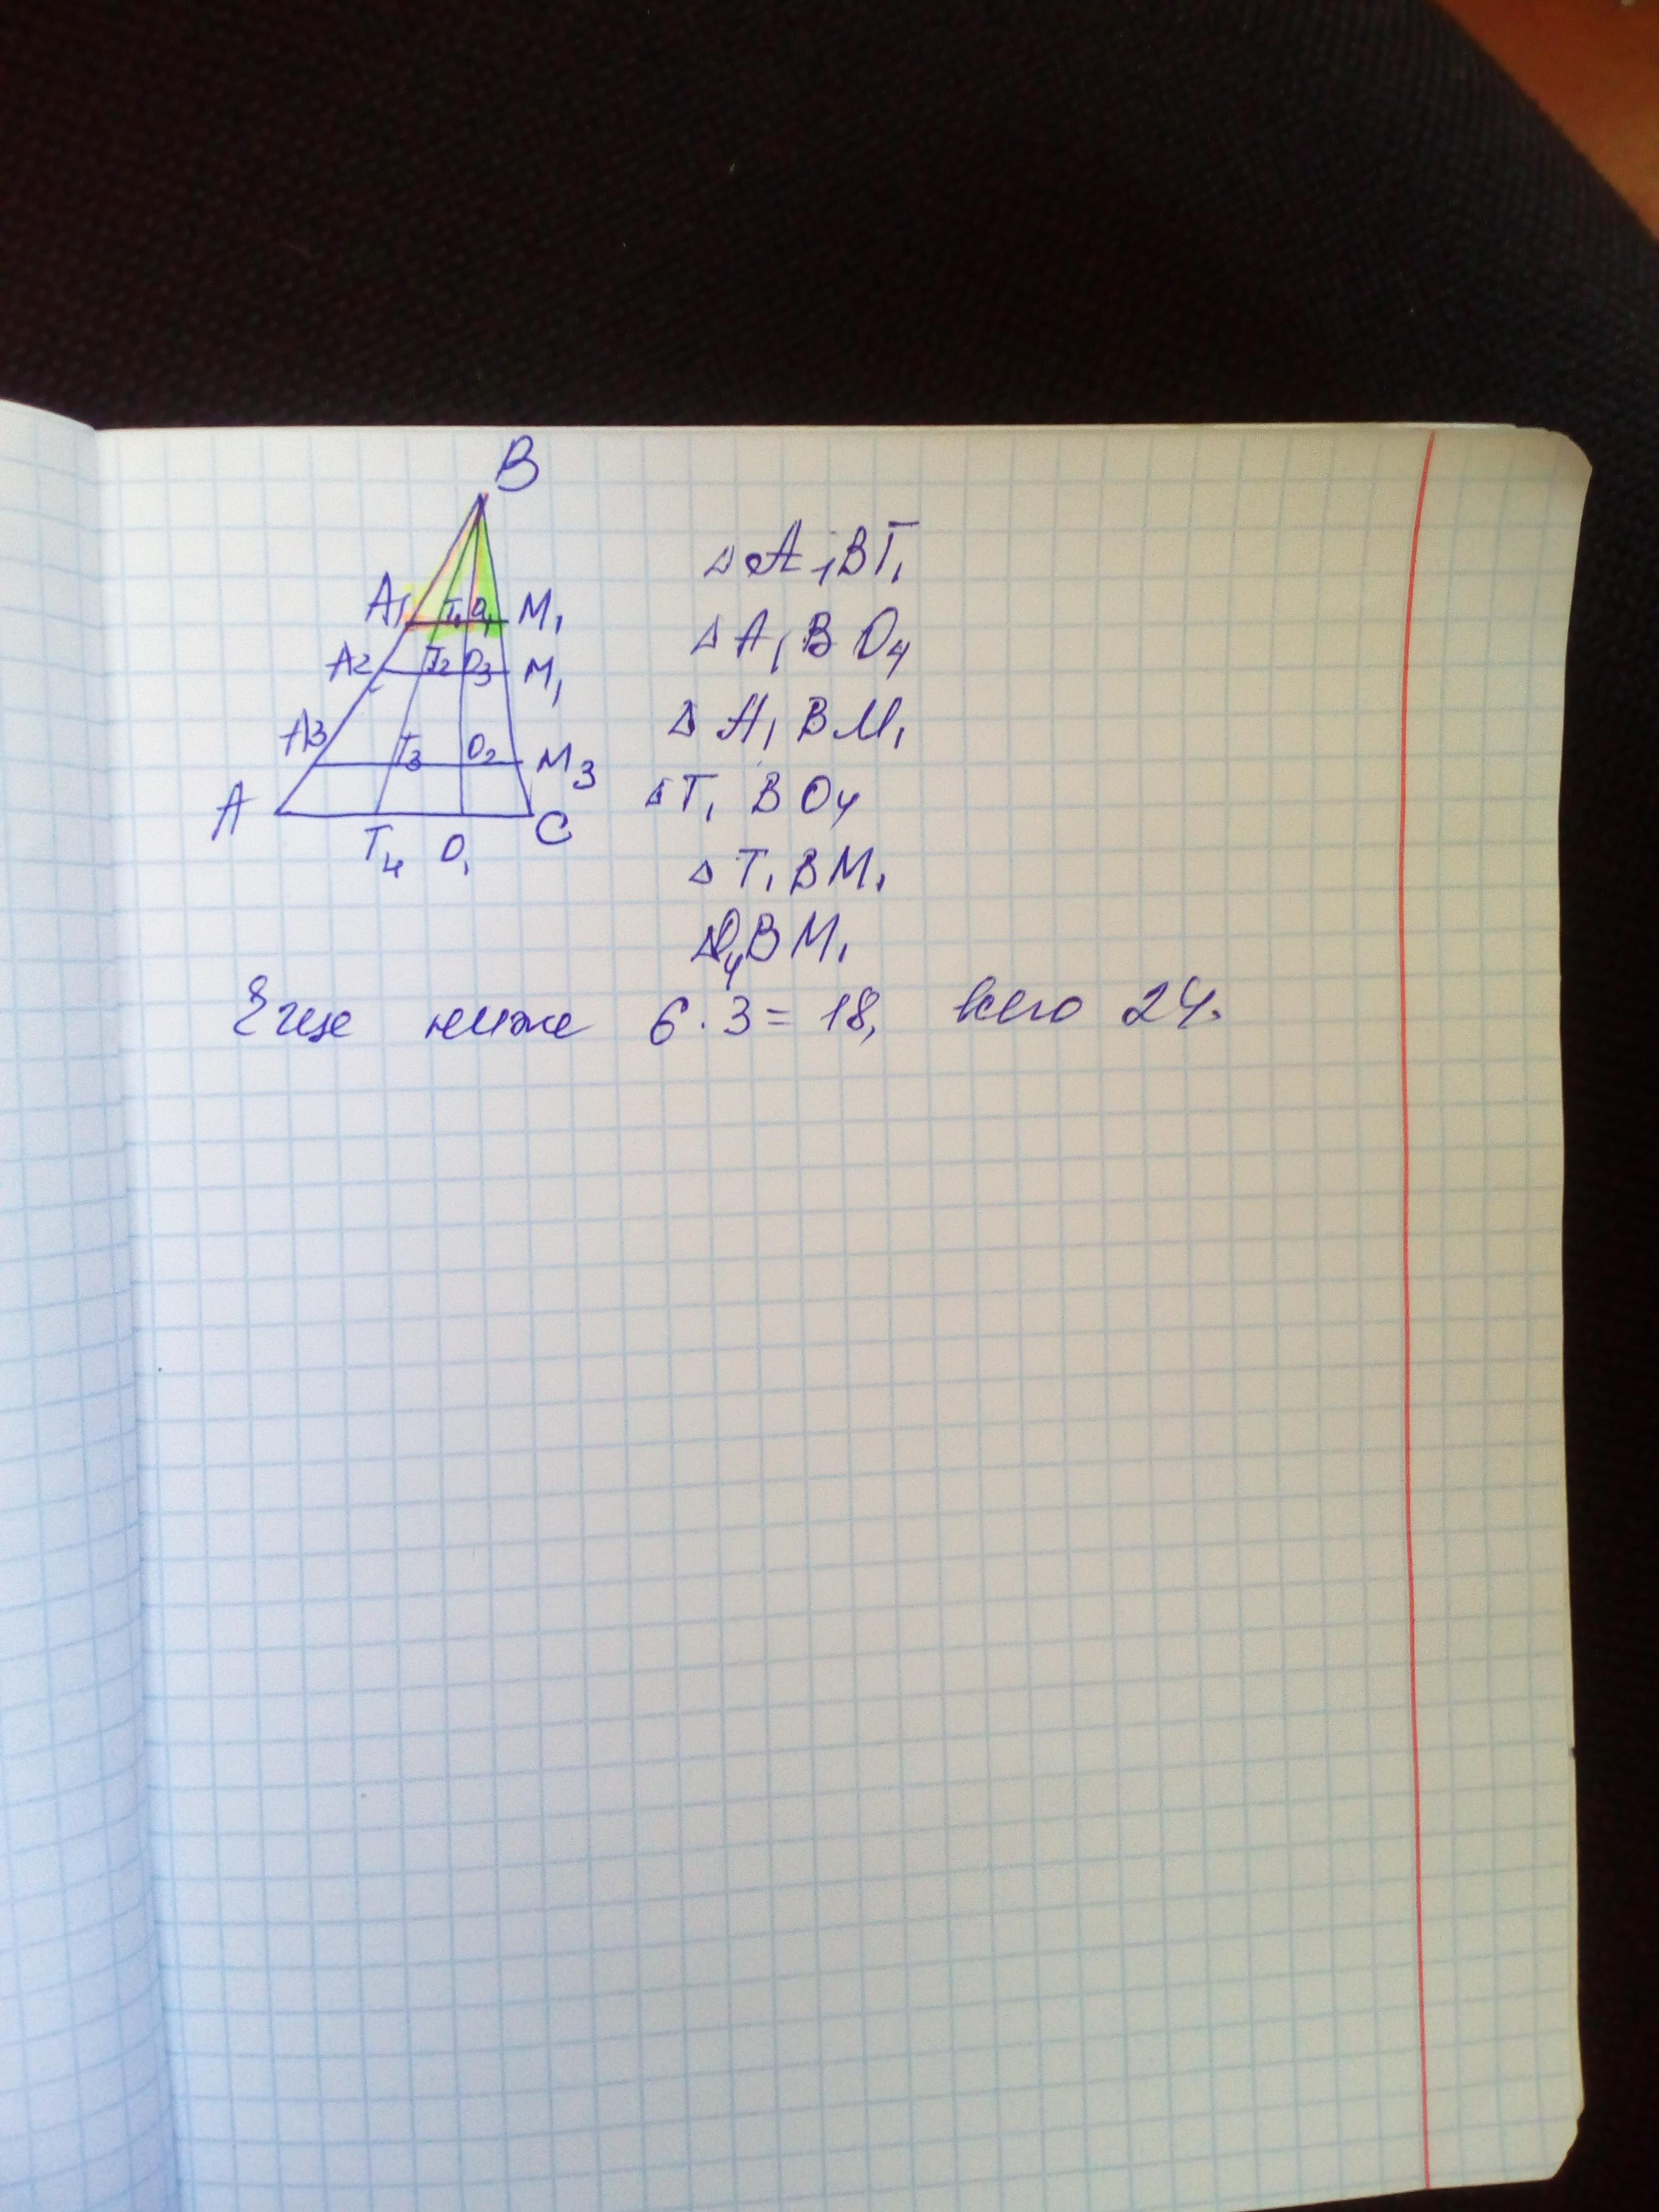 B
A1 T1 O4 M1
A2 T2 O3 M1
A3 T3 O2 M3
A C
T4 O1
△A1BT1
△A1BO4
△A1BM1
△T1BO4
△T1BM1
△O4BM1
Еще ниже 6·3=18, всего 24.